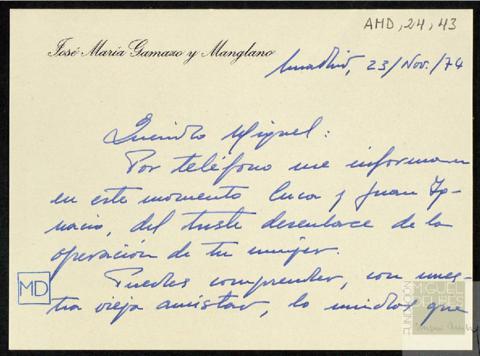 AMD, 24, 43
José María Gamazo y Manglano
Madrid, 23/Nov./74
Querido Miguel:
Por teléfono me informan
en este momento Cuca y Juan Ig-
nacio, del triste desenlace de la
operación de tu mujer.
Puedes comprender, con nues-
tra vieja amistad, lo mucho que
MD
FUNDACIÓN
MIGUEL
DELIBES